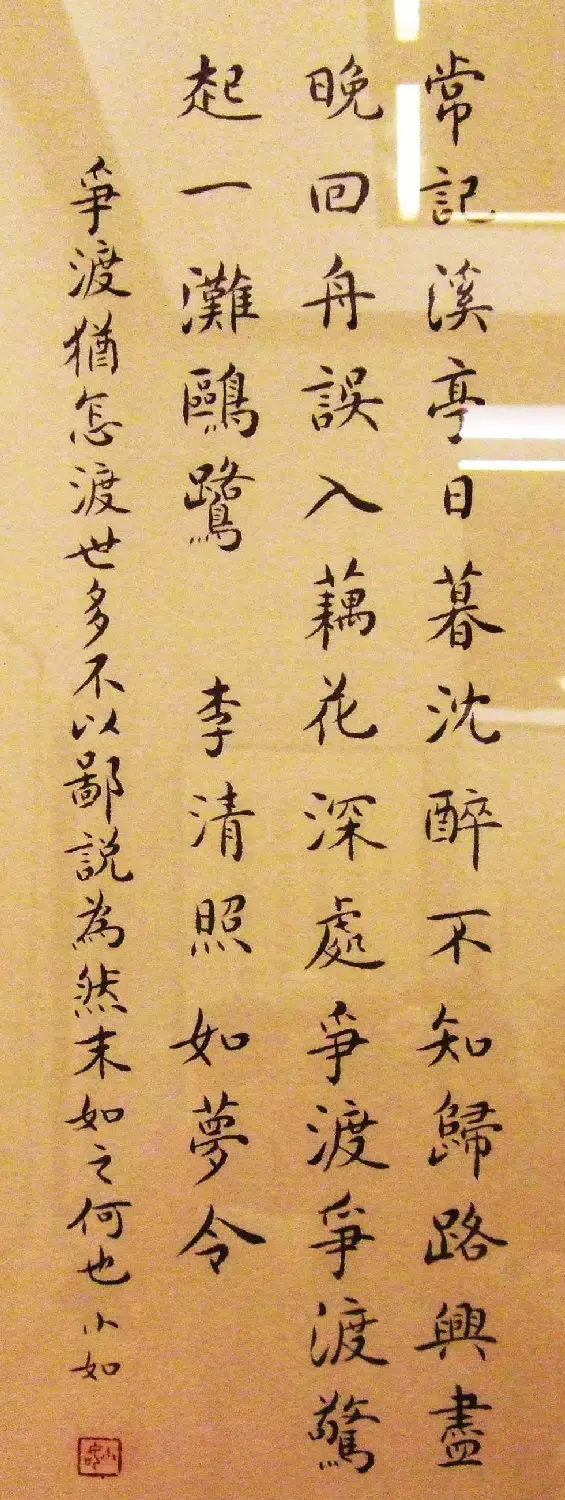 常記溪亭日暮沈醉不知歸路興盡
晚回舟誤入藕花深處爭渡爭渡驚
起一灘鷗鷺 李清照如夢令
爭渡猶怎渡世多不以鄙説為然末如之何也 小如